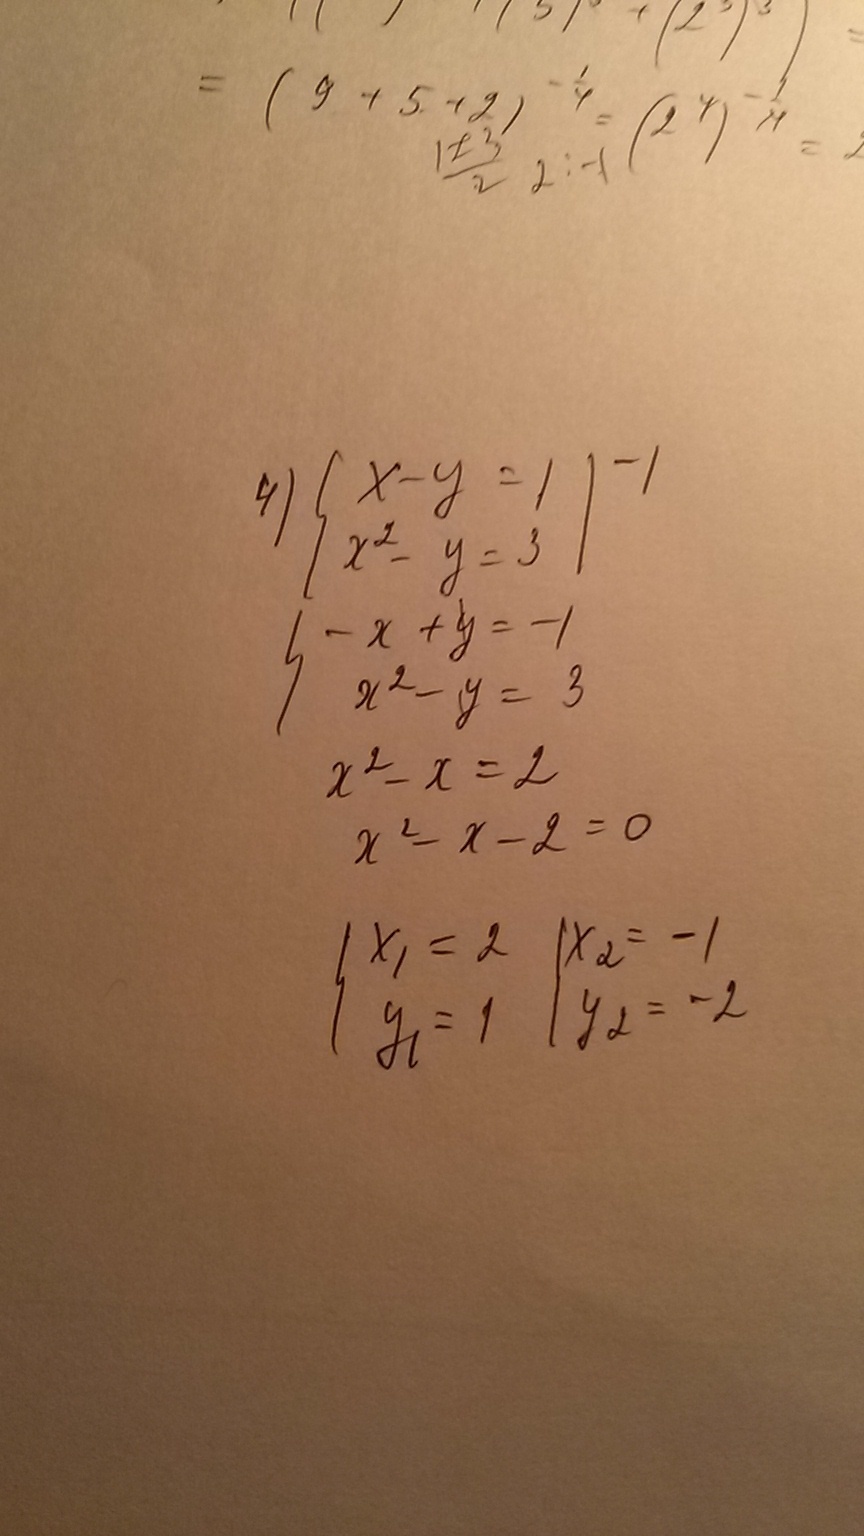 5) + (2³)³) =
= (9 + 5 + 2)^(-1/4) = (2⁴)^(-1/4) = 2
(1±3)/2 2; -1
4) { x - y = 1 | -1
{ x² - y = 3 |
{ - x + y = -1
{ x² - y = 3
x² - x = 2
x² - x - 2 = 0
{ x₁ = 2 { x₂ = -1
{ y₁ = 1 { y₂ = -2